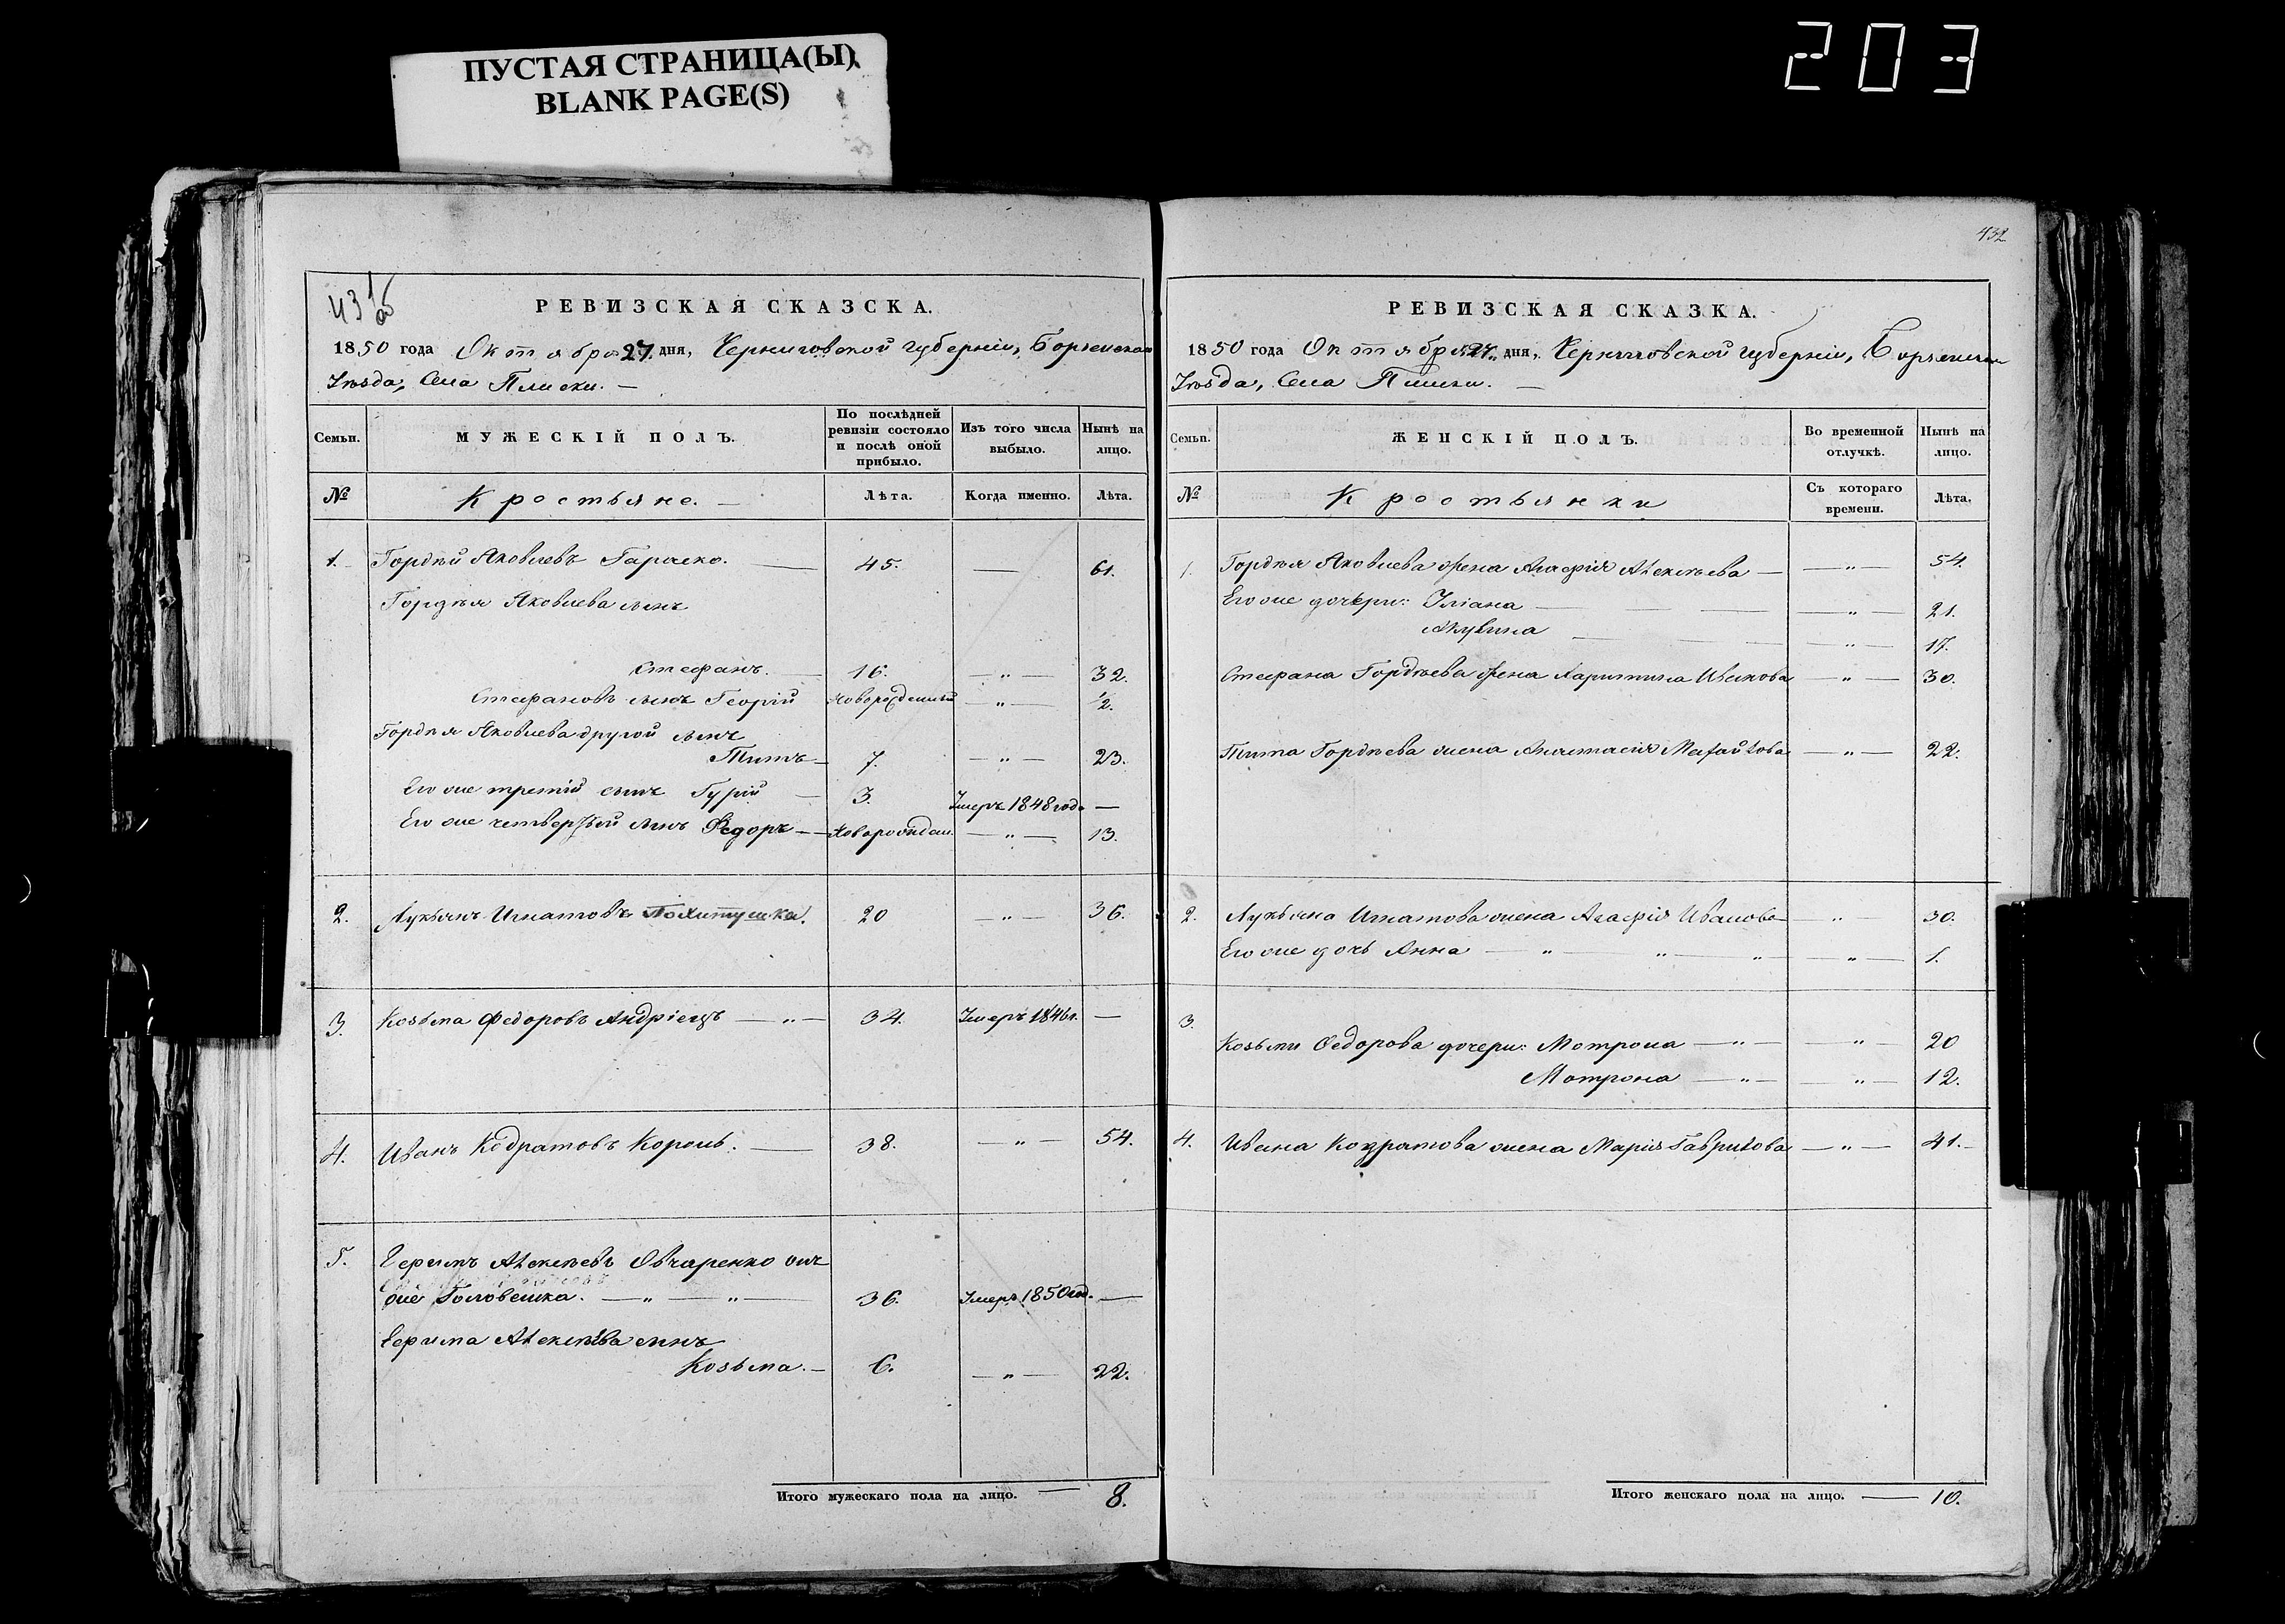 ПУСТАЯ СТРАНИЦА(Ы)
BLANK PAGE(S)
203
432
431 об
РЕВИЗСКАЯ СКАЗСКА.
1850 года Октября 27 дня, Черниговской губерніи, Борзенскаго
Уѣзда, Села Плиски. —
Семьи.
МУЖЕСКІЙ ПОЛЪ.
По послѣдней ревизіи состояло и послѣ оной прибыло.
Изъ того числа выбыло.
Нынѣ на лицо.
№
Крестьяне. —
Лѣта.
Когда именно.
Лѣта.
1. Гордѣй Яковлевъ Гаращенко. — 45. — 61.
Гордѣя Яковлева сынъ
Стефанъ. — 16. — „ — 32.
Стефановъ сынъ Георгій Новорожденный — „ — 1/2.
Гордѣя Яковлева другой сынъ
Титъ — 7. — „ — 23.
Его же третій сынъ Гурій — 3. Умеръ 1848 года —
Его же четвертый сынъ Федоръ — Новорожден. — „ — 13.
2. Лукьянъ Игнатовъ Похитушка. 20 — „ — 36.
3. Козьма Федоровъ Андріецъ — „ — 34. Умеръ 1846 г. —
4. Иванъ Кодратовъ Король. — 38. — „ — 54.
5. Ефимъ Алексѣевъ Овчаренко онъ
же Головешка. — „ — „ — 36. Умеръ 1850 год. —
Ефима Алексѣева сынъ
Козьма. — 6. — „ — 22.
Итого мужескаго пола на лицо. — 8.
РЕВИЗСКАЯ СКАЗКА.
1850 года Октября 27 дня, Черниговской губерніи, Борзенскаго
Уѣзда, Села Плиски. —
Семьи.
ЖЕНСКІЙ ПОЛЪ.
Во временной отлучкѣ.
Нынѣ на лицо.
№
Крестьянки
Съ котораго времени.
Лѣта.
1. Гордѣя Яковлева жена Агафія Алексѣева — — „ — 54.
Его же дочери: Уліана — — „ — 21.
Акулина — — „ — 17.
Стефана Гордѣева жена Харитина Иванова — „ — 30.
Тита Гордѣева жена Анастасія Михайлова — „ — 22.
2. Лукьяна Игнатова жена Агафія Иванова — „ — 30.
Его же дочь Анна — „ — „ — „ — — „ — 1.
3.
Козьмы Федорова дочери: Мотрона — „ — „ — 20
Мотрона — „ — — „ — 12.
4. Ивана Кондратова жена Марія Гаврилова — „ — 41. —
Итого женскаго пола на лицо. — 10.